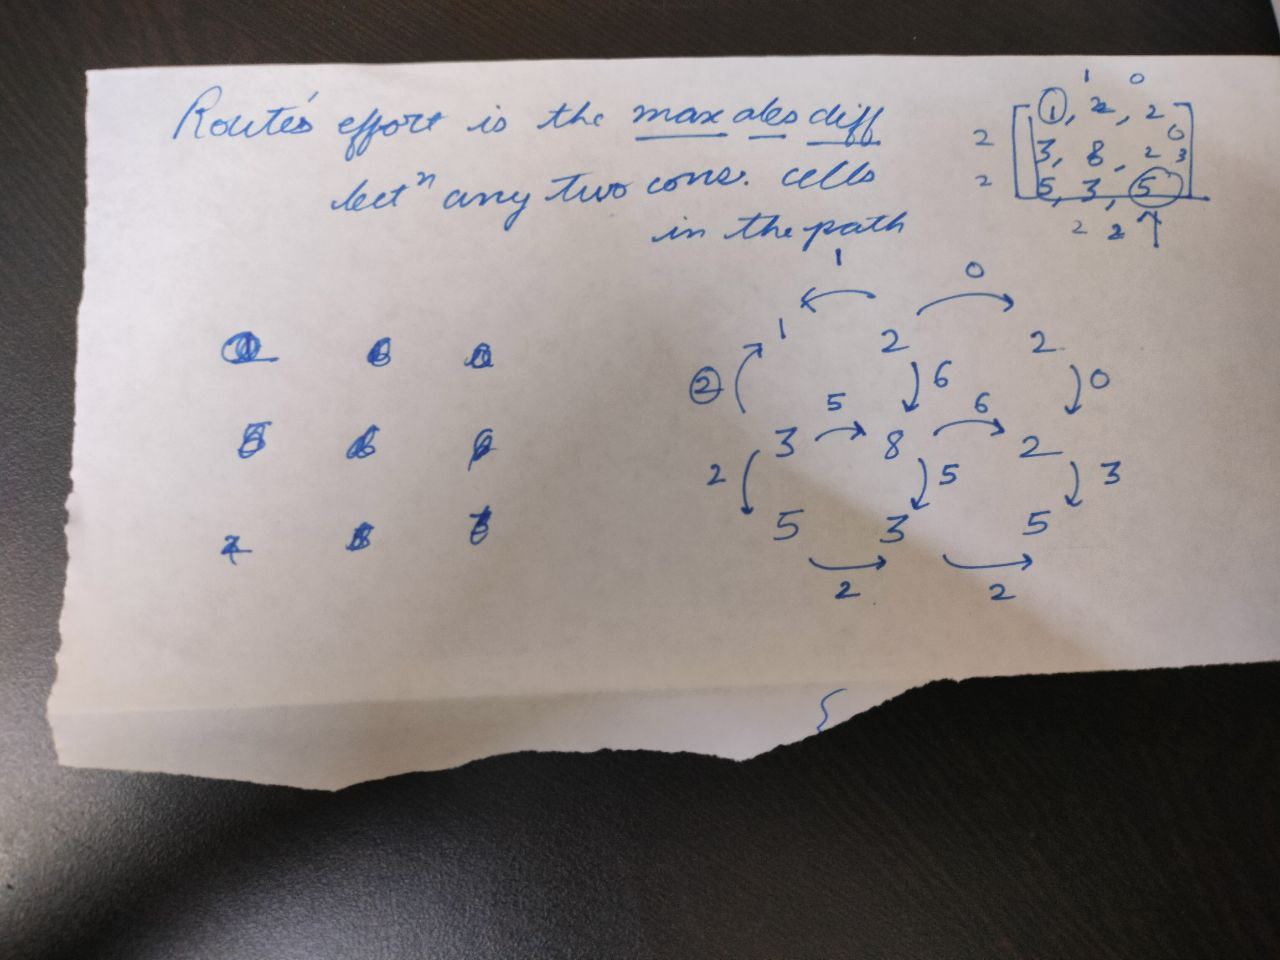 Route's effort is the max abs diff
betⁿ any two cons. cells
in the path
1 0
2 [ 1, 2, 2
0
3, 8, 2 3
2 5, 3, 5 ]
2 2
1 0
1 2 2
2 6 0
5 6
3 8 2
2 5 3
5 3 5
2 2
{